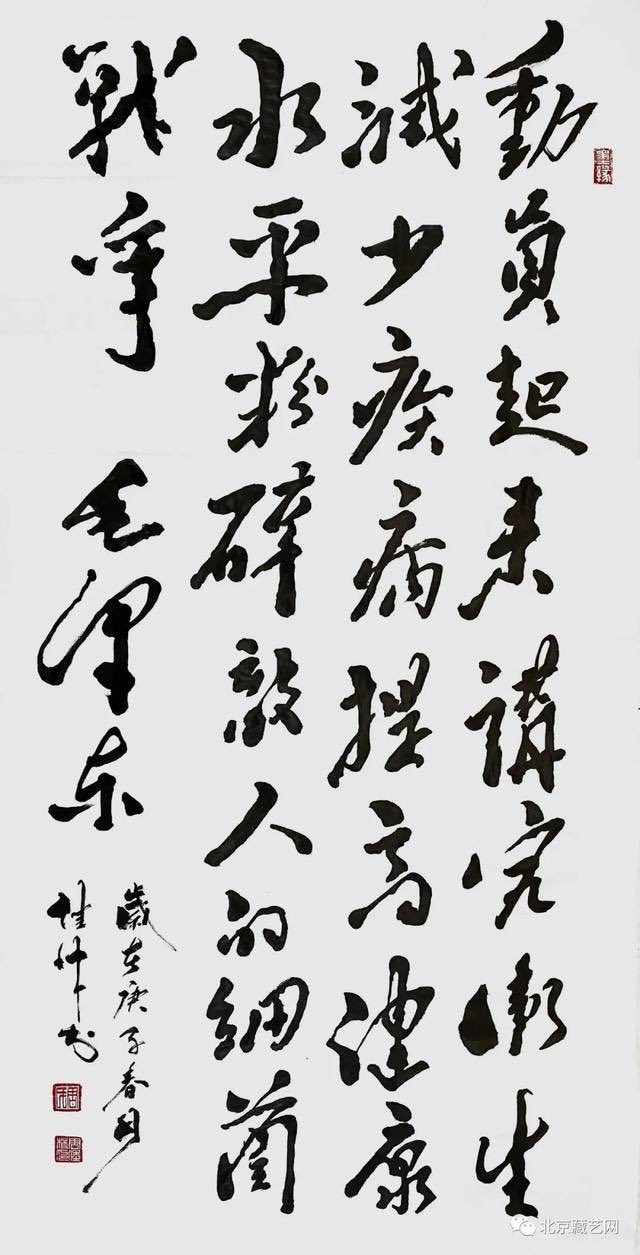 動員起来講究衛生
減少疾病提高健康
水平粉碎敵人的細菌
戰爭 毛澤东
歲在庚子春月
仲 书
北京藏艺网